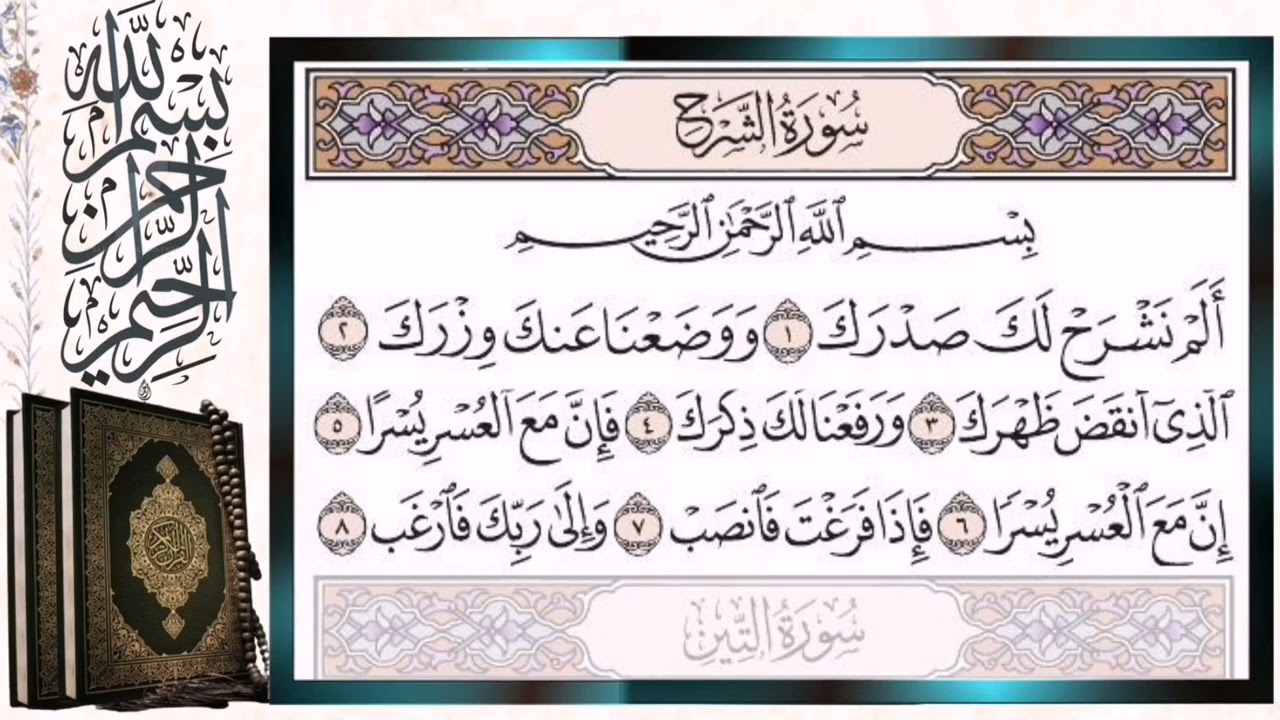 بِسْمِ اللهِ الرَّحْمٰنِ الرَّحِيْمِ
سُورَةُ الشَّرْحِ
بِسْمِ ٱللَّهِ ٱلرَّحْمَٰنِ ٱلرَّحِيمِ
أَلَمْ نَشْرَحْ لَكَ صَدْرَكَ ١ وَوَضَعْنَا عَنكَ وِزْرَكَ ٢
ٱلَّذِىٓ أَنقَضَ ظَهْرَكَ ٣ وَرَفَعْنَا لَكَ ذِكْرَكَ ٤ فَإِنَّ مَعَ ٱلْعُسْرِ يُسْرًا ٥
إِنَّ مَعَ ٱلْعُسْرِ يُسْرًا ٦ فَإِذَا فَرَغْتَ فَٱنصَبْ ٧ وَإِلَىٰ رَبِّكَ فَٱرْغَب ٨
سُورَةُ التِّينِ